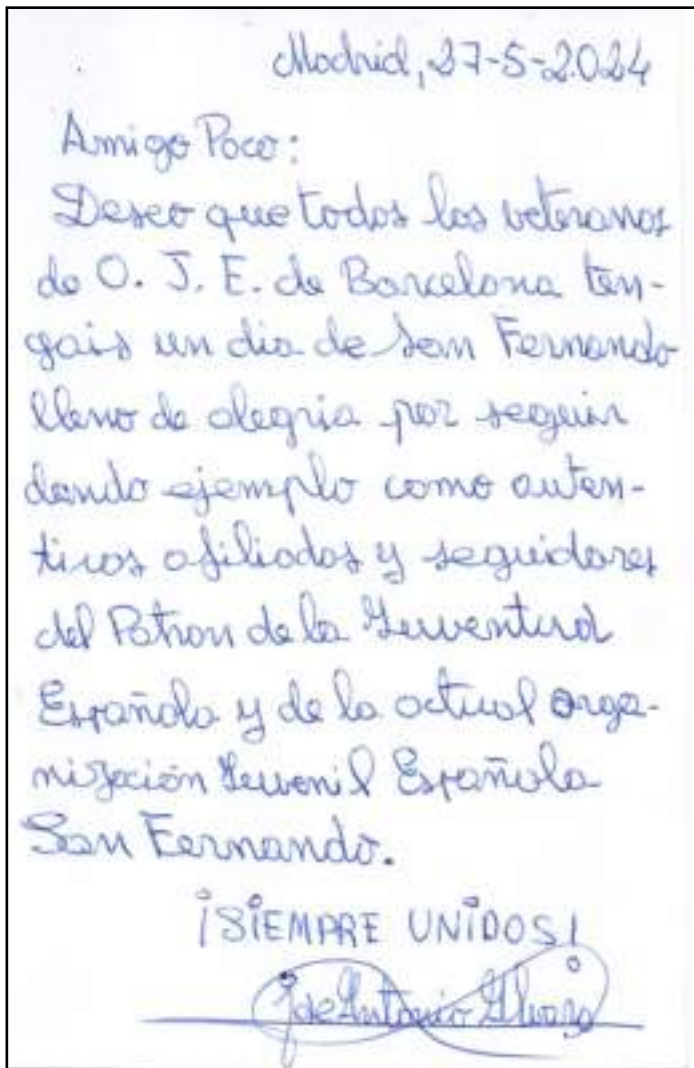 Madrid, 27-5-2.024
Amigo Poco:
Deseo que todos los veteranos
de O. J. E. de Barcelona ten-
gais un dia de San Fernando
lleno de alegria por seguir
dando ejemplo como auten-
ticos afiliados y seguidores
del Patron de la Juventud
Española y de la actual orga-
nización Juvenil Española
San Fernando.
¡SIEMPRE UNIDOS!
de Antonio